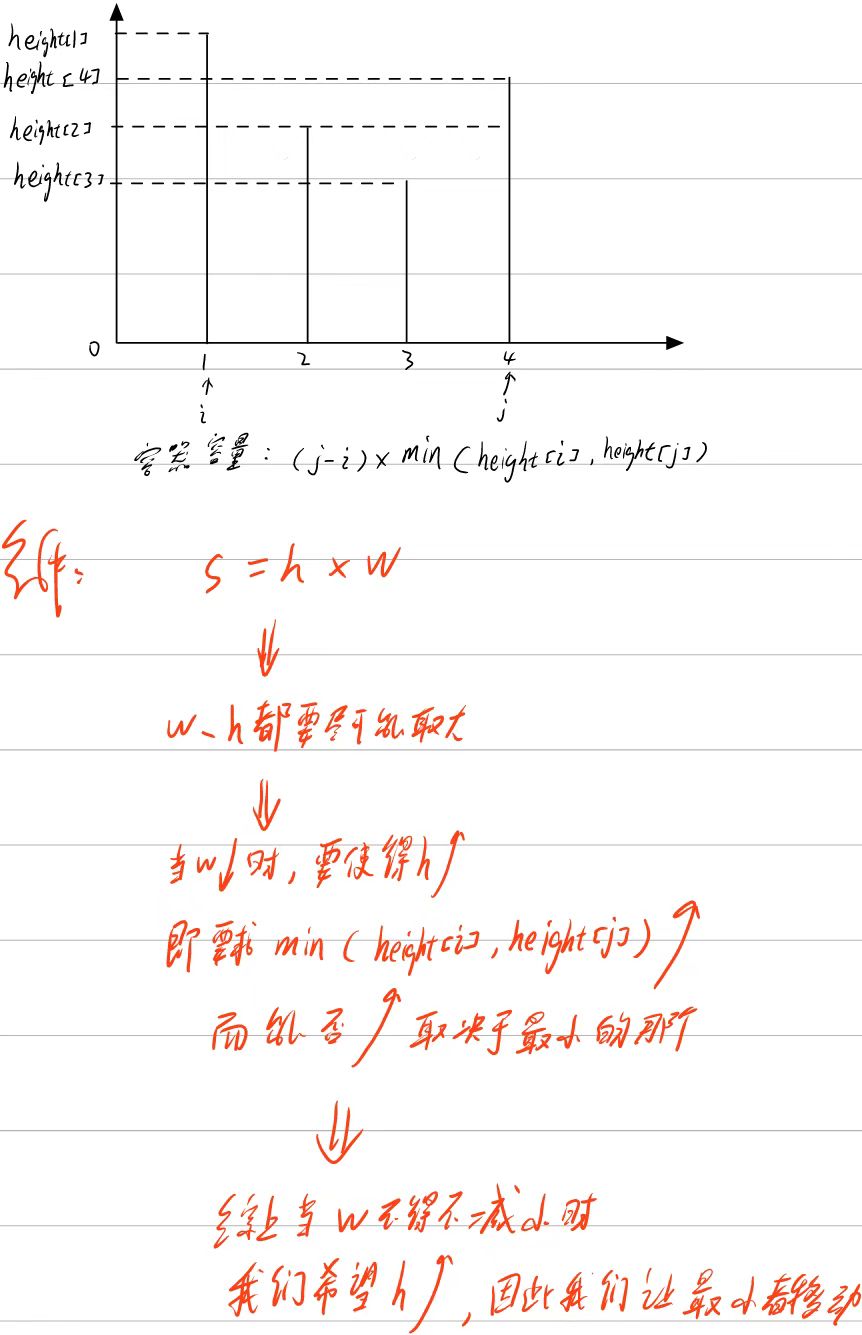 height[1]
height[4]
height[2]
height[3]
0 1 2 3 4
i j
容器容量：(j-i)×min(height[i],height[j])
S=h×w
⇓
w、h都要尽可能取大
⇓
当w↓时,要使得h↑
即要求min(height[i],height[j])↑
而能否↑取决于最小的那个
⇓
综上当w不得不减小时
我们希望h↑,因此我们让最小者移动